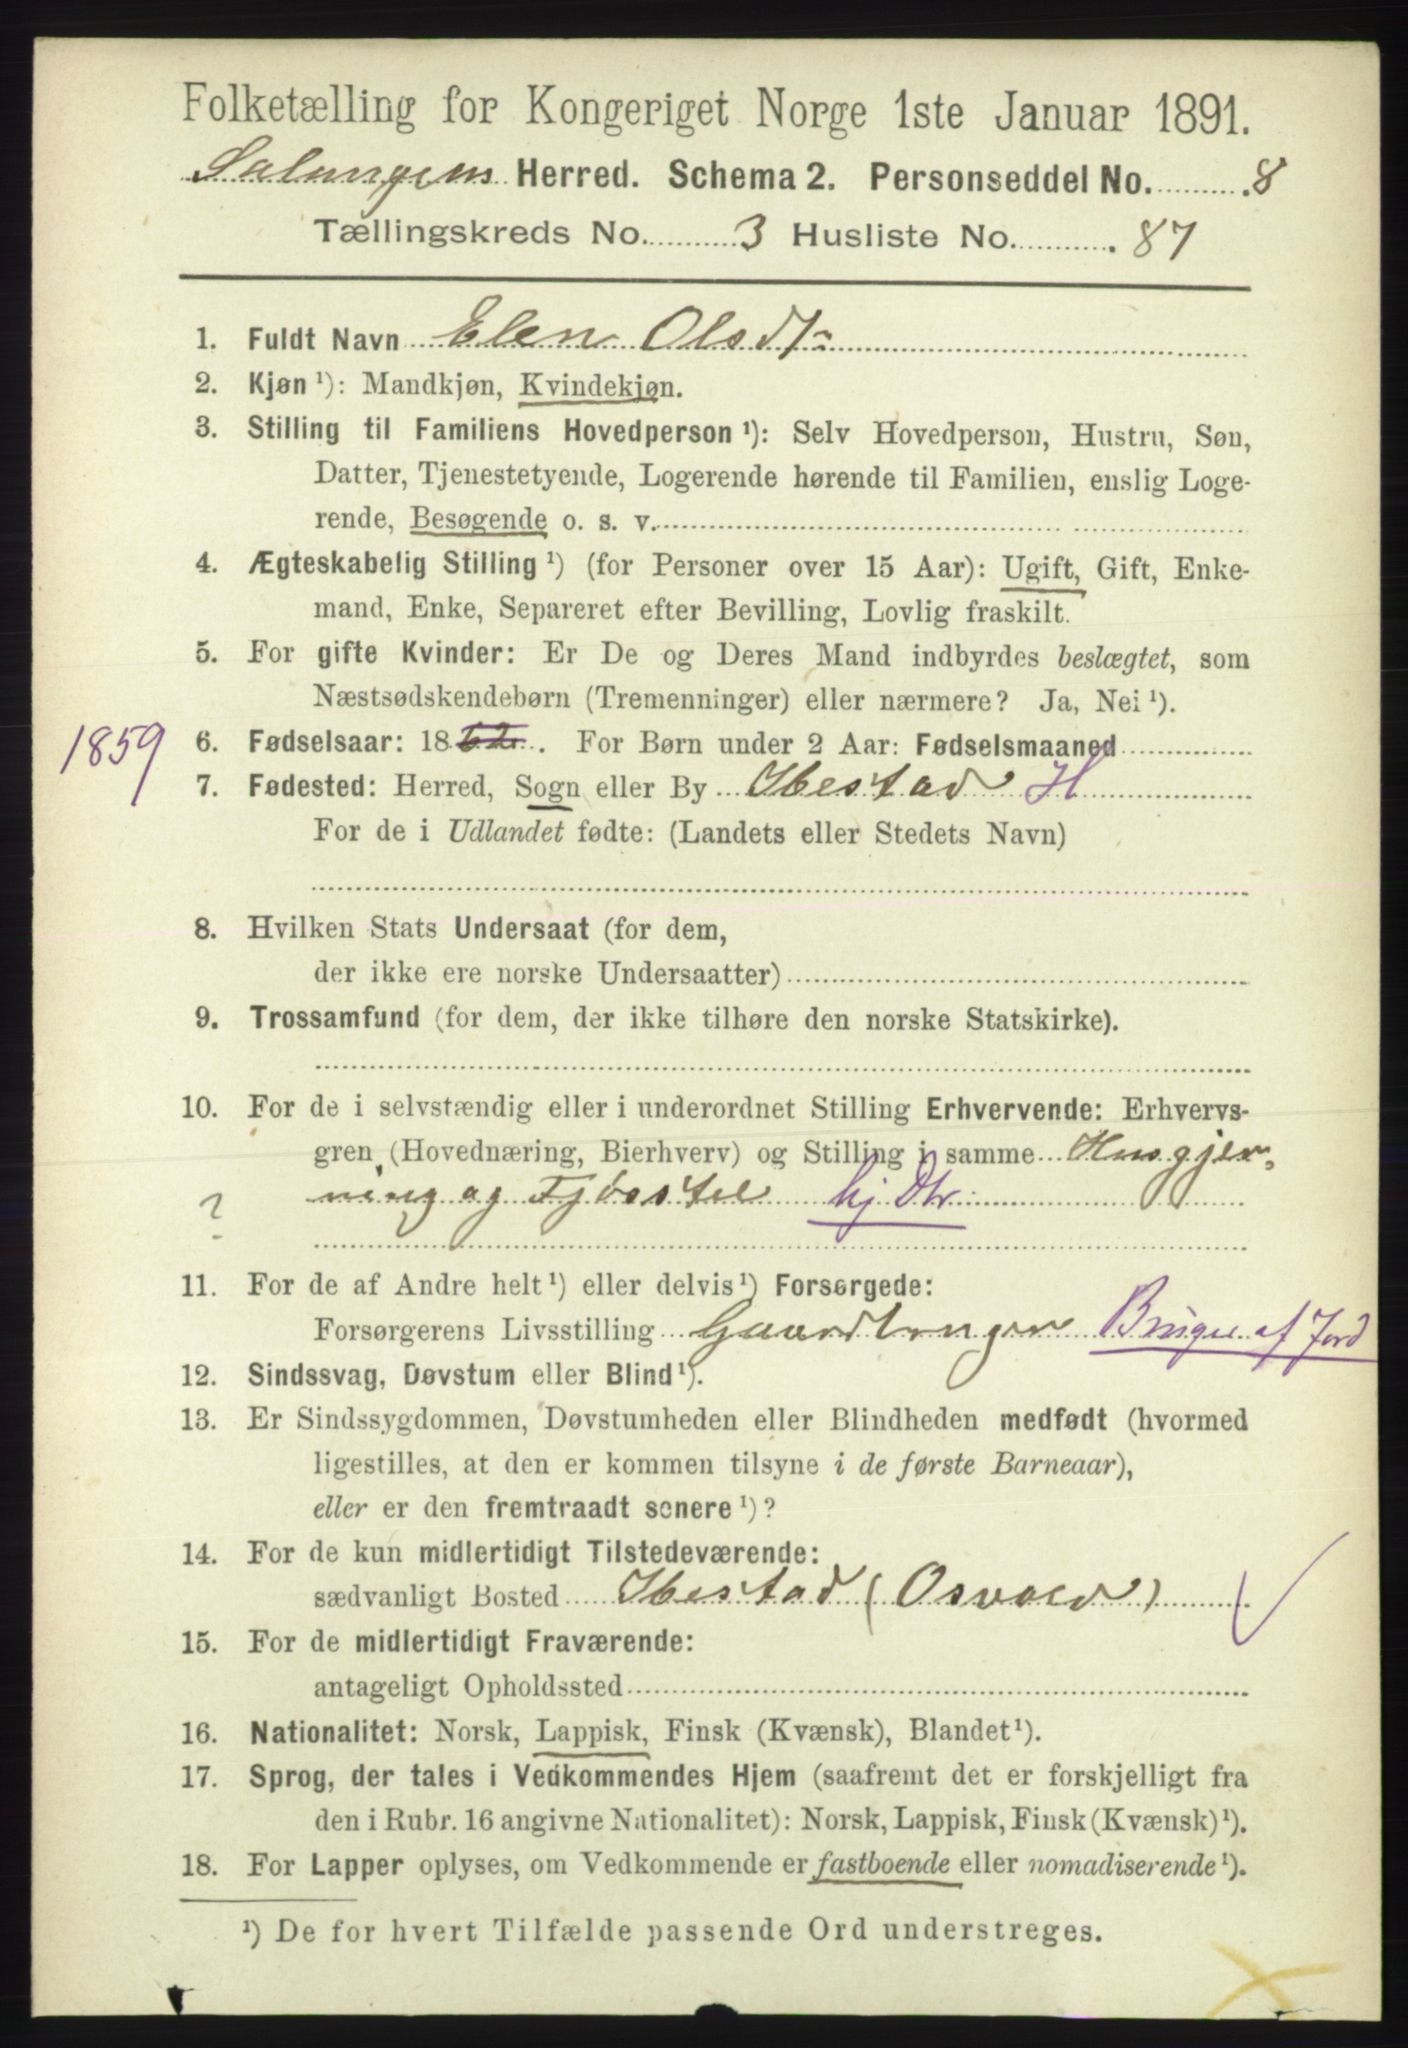 Folketælling for Kongeriget Norge 1ste Januar 1891.
Salangens Herred. Schema 2. Personseddel No. 8
Tællingskreds No. 3 Husliste No. 87
1. Fuldt Navn Elen Olsdtr
2. Kjøn ¹): Mandkjøn, Kvindekjøn.
3. Stilling til Familiens Hovedperson ¹): Selv Hovedperson, Hustru, Søn,
Datter, Tjenestetyende, Logerende hørende til Familien, enslig Loge-
rende, Besøgende o. s. v.
4. Ægteskabelig Stilling ¹) (for Personer over 15 Aar): Ugift, Gift, Enke-
mand, Enke, Separeret efter Bevilling, Lovlig fraskilt.
5. For gifte Kvinder: Er De og Deres Mand indbyrdes beslægtet, som
Næstsødskendebørn (Tremenninger) eller nærmere? Ja, Nei ¹).
1859 6. Fødselsaar: 1862. For Børn under 2 Aar: Fødselsmaaned
7. Fødested: Herred, Sogn eller By Ibestad H
For de i Udlandet fødte: (Landets eller Stedets Navn)
8. Hvilken Stats Undersaat (for dem,
der ikke ere norske Undersaatter)
9. Trossamfund (for dem, der ikke tilhøre den norske Statskirke).
10. For de i selvstændig eller i underordnet Stilling Erhvervende: Erhvervs-
gren (Hovednæring, Bierhverv) og Stilling i samme Husgjer-
? ning og Fjøsstel hj Dtr
11. For de af Andre helt ¹) eller delvis ¹) Forsørgede:
Forsørgerens Livsstilling Gaardbruger Bruger af Jord
12. Sindssvag, Døvstum eller Blind ¹).
13. Er Sindssygdommen, Døvstumheden eller Blindheden medfødt (hvormed
ligestilles, at den er kommen tilsyne i de første Barneaar),
eller er den fremtraadt senere ¹)?
14. For de kun midlertidigt Tilstedeværende:
sædvanligt Bosted Ibestad (Osvold)
15. For de midlertidigt Fraværende:
antageligt Opholdssted
16. Nationalitet: Norsk, Lappisk, Finsk (Kvænsk), Blandet ¹).
17. Sprog, der tales i Vedkommendes Hjem (saafremt det er forskjelligt fra
den i Rubr. 16 angivne Nationalitet): Norsk, Lappisk, Finsk (Kvænsk) ¹).
18. For Lapper oplyses, om Vedkommende er fastboende eller nomadiserende ¹).
¹) De for hvert Tilfælde passende Ord understreges.